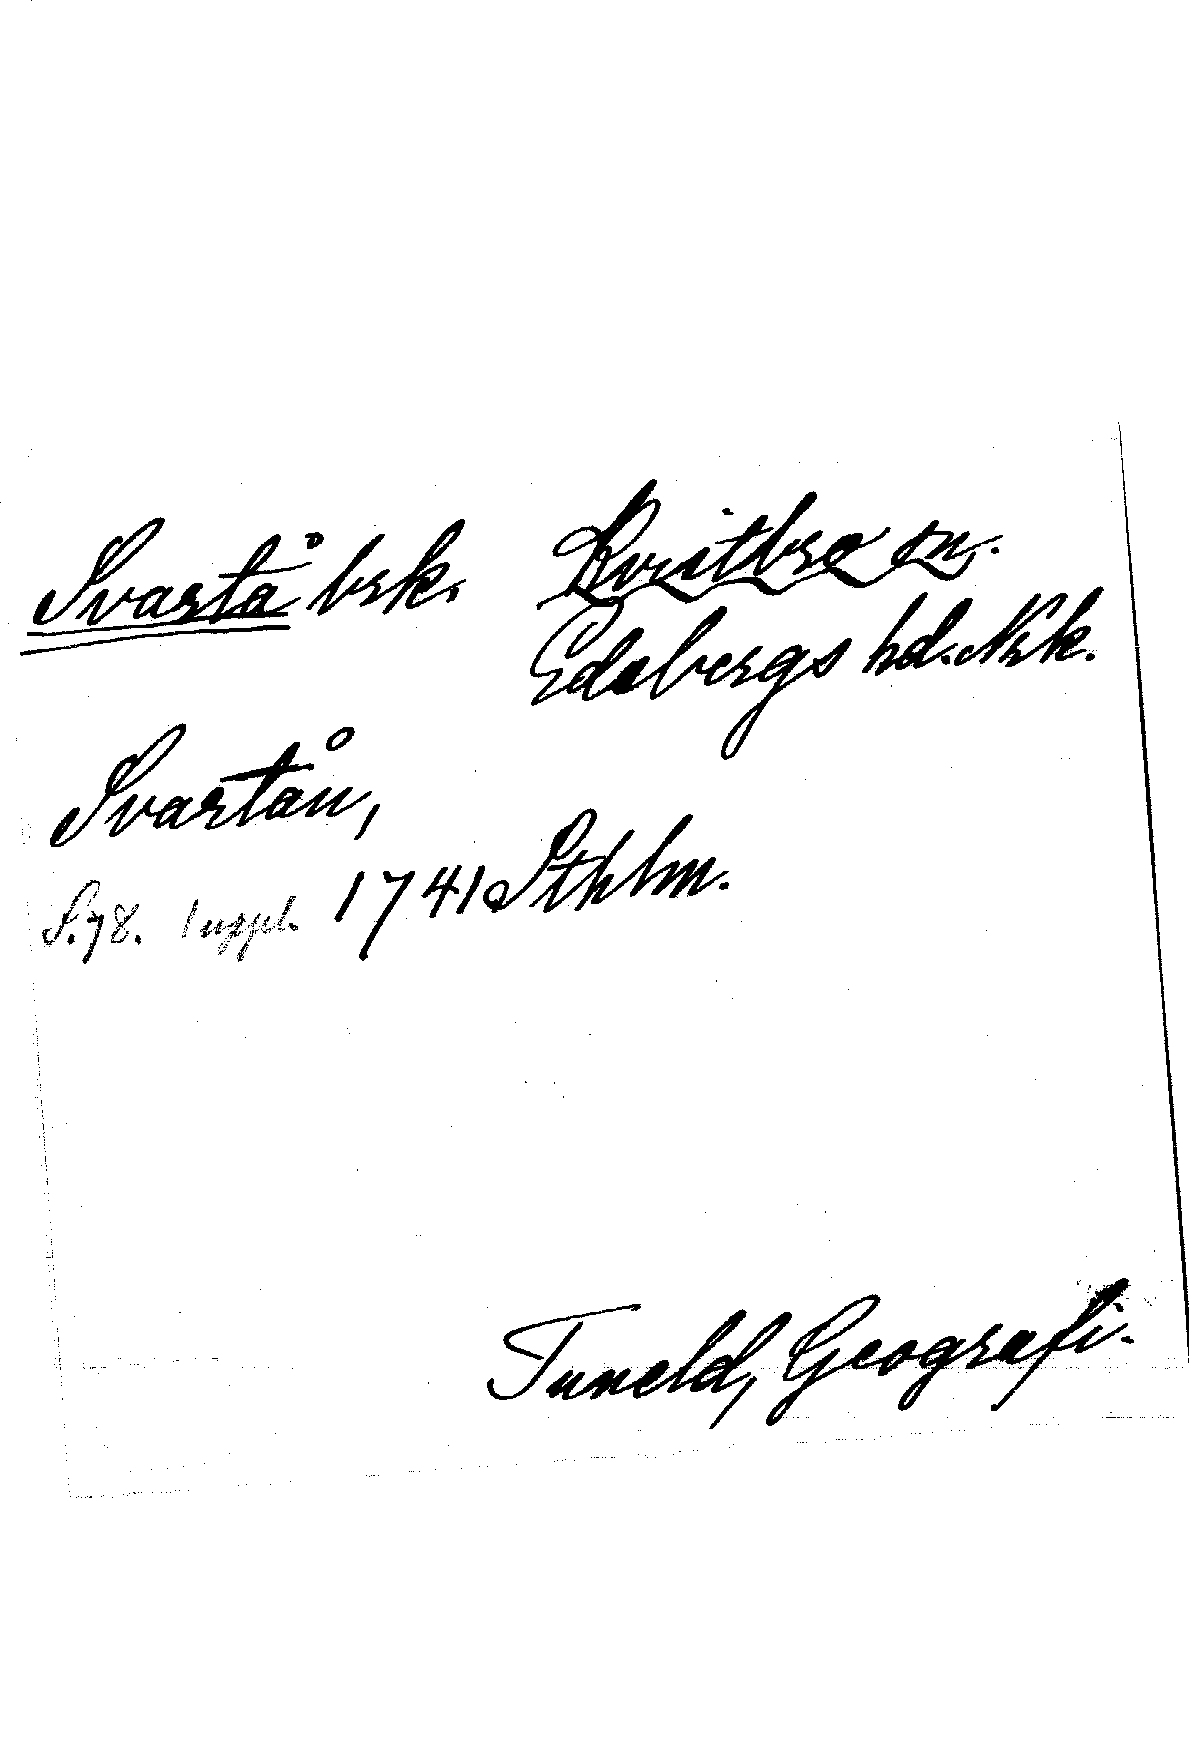 Svartå brk. Kvistbro sn.
Edsbergs hd. Nrk.
Svartån,
S. 78. 1 uppl. 1741 Sthlm.
Tuneld, Geografi.